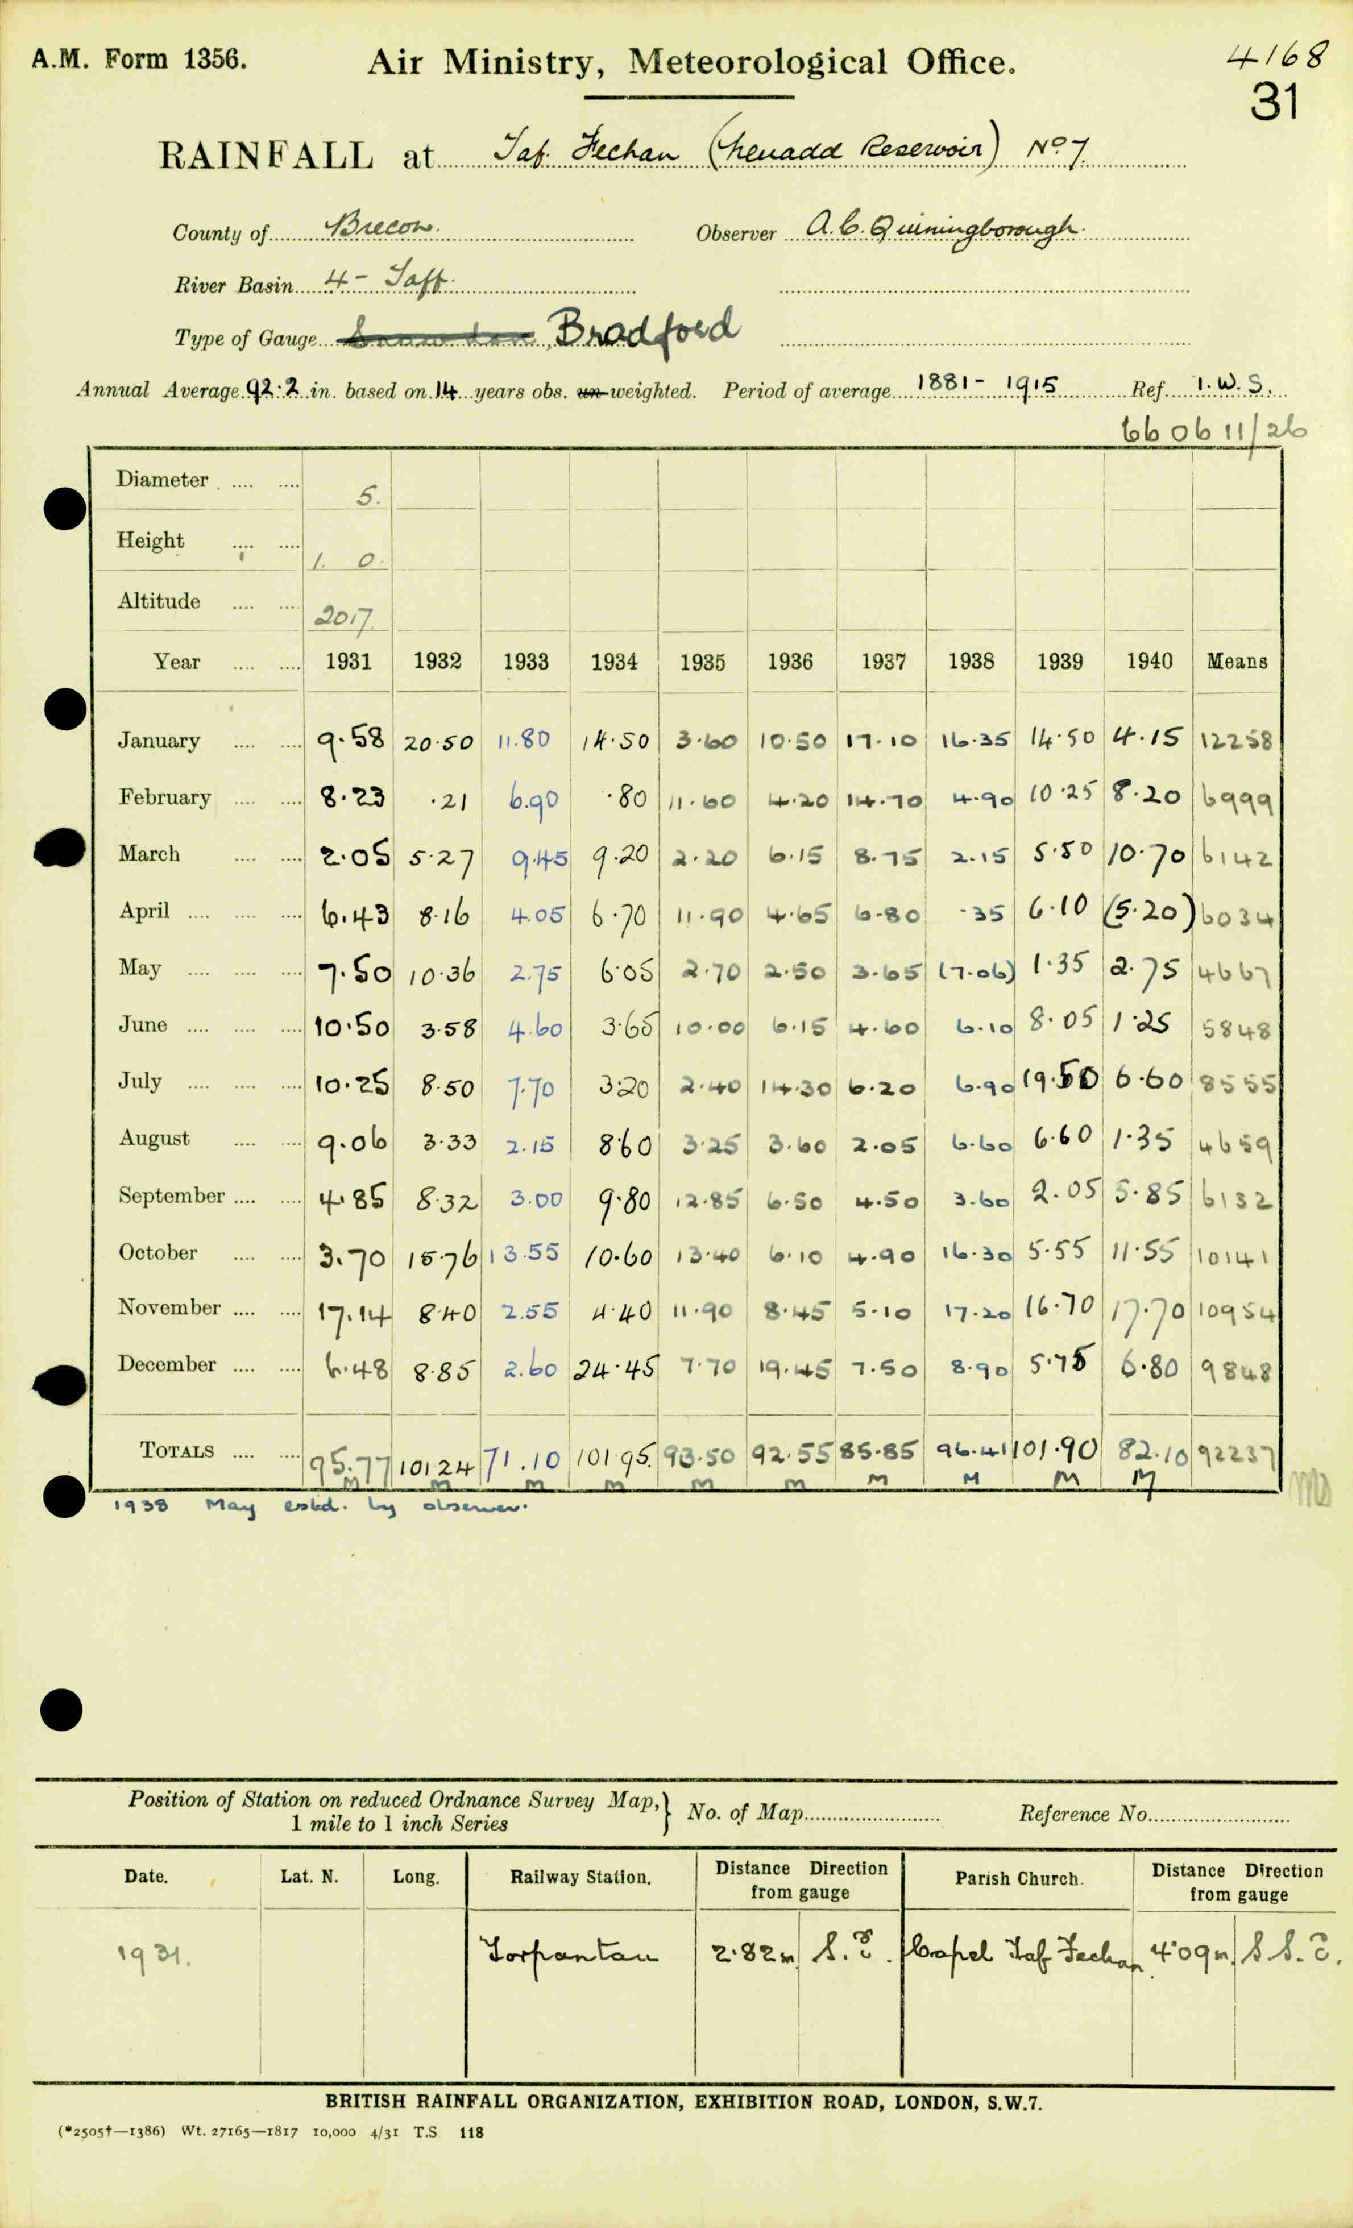 A.M. Form 1356.
Air Ministry, Meteorological Office.
4168
31
RAINFALL at Taf Fechan (Neuadd Reservoir) No 7
County of Brecon.
Observer A.C. Quiningborough.
River Basin 4 - Taff
Type of Gauge Snowdon Bradford
Annual Average 92.2 in. based on 14 years obs. un-weighted. Period of average 1881 - 1915 Ref. I.W.S.
660611/26
Diameter 5.
Height 1. 0.
Altitude 2017.
Year 1931 1932 1933 1934 1935 1936 1937 1938 1939 1940 Means
January 9.58 20.50 11.80 14.50 3.60 10.50 17.10 16.35 14.50 4.15 12258
February 8.23 .21 6.90 .80 11.60 4.20 14.70 4.90 10.25 8.20 6999
March 2.05 5.27 9.45 9.20 2.20 6.15 8.75 2.15 5.50 10.70 6142
April 6.43 8.16 4.05 6.70 11.90 4.65 6.80 .35 6.10 (5.20) 6034
May 7.50 10.36 2.75 6.05 2.70 2.50 3.65 (7.06) 1.35 2.75 4667
June 10.50 3.58 4.60 3.65 10.00 6.15 4.60 6.10 8.05 1.25 5848
July 10.25 8.50 7.70 3.20 2.40 14.30 6.20 6.90 19.50 6.60 8555
August 9.06 3.33 2.15 8.60 3.25 3.60 2.05 6.60 6.60 1.35 4659
September 4.85 8.32 3.00 9.80 12.85 6.50 4.50 3.60 2.05 5.85 6132
October 3.70 15.76 13.55 10.60 13.40 6.10 4.90 16.30 5.55 11.55 10141
November 17.14 8.40 2.55 4.40 11.90 8.45 5.10 17.20 16.70 17.70 10954
December 6.48 8.85 2.60 24.45 7.70 19.45 7.50 8.90 5.75 6.80 9848
TOTALS 95.77 101.24 71.10 101.95 93.50 92.55 85.85 96.41 101.90 82.10 92237
M M M M M M M M M M
1938 May estd. by observer.
Position of Station on reduced Ordnance Survey Map,
1 mile to 1 inch Series
No. of Map
Reference No.
Date. Lat. N. Long. Railway Station. Distance Direction from gauge Parish Church. Distance Direction from gauge
1931. Torpantau 2.82m S.E. Capel Taf Fechan 4.09m. S S.E.
BRITISH RAINFALL ORGANIZATION, EXHIBITION ROAD, LONDON, S.W.7.
(*2505†—1386) Wt. 27165—1817 10,000 4/31 T.S. 118